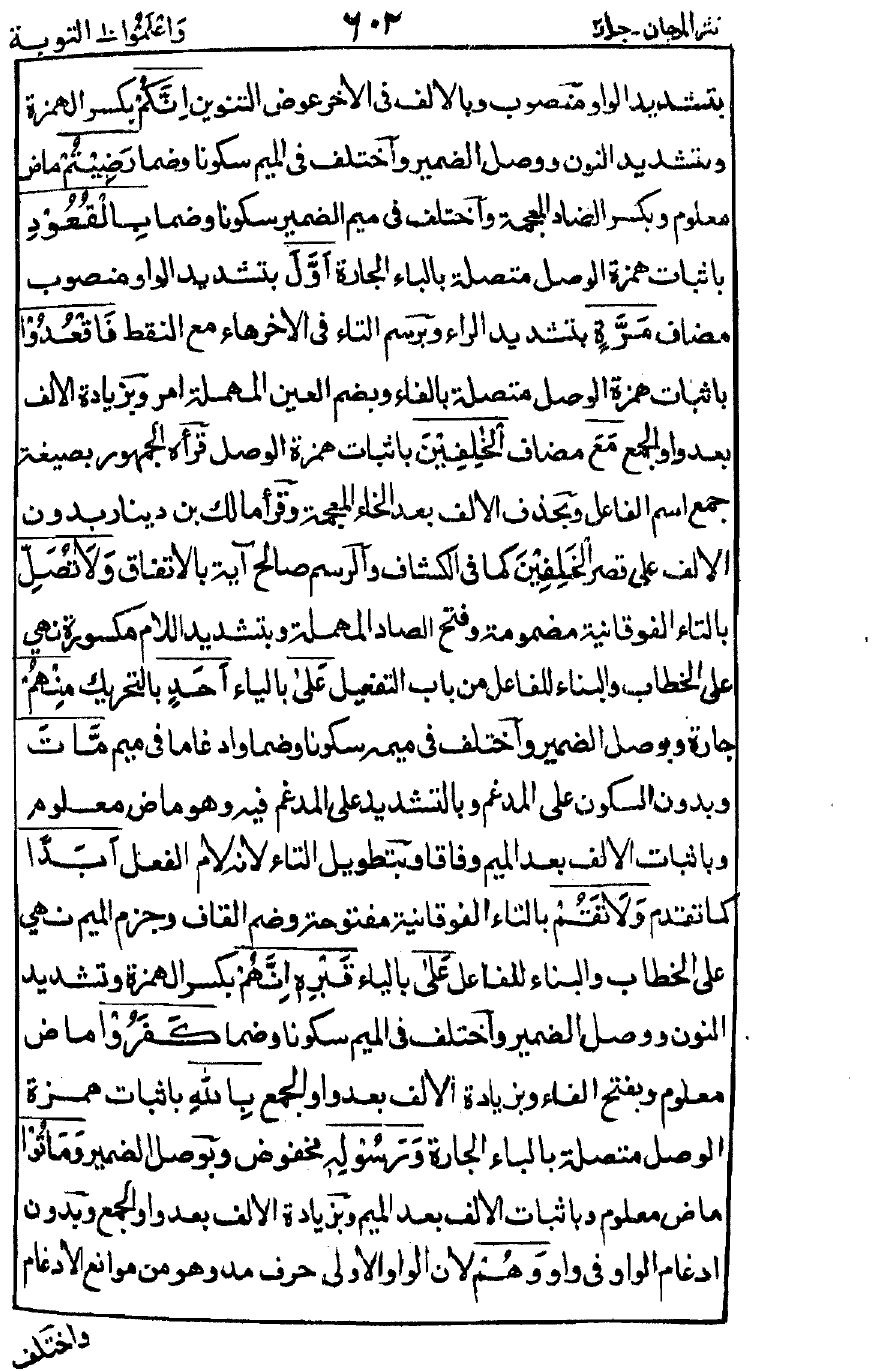 نثر المرجان - جلد٢ ٦٠٢ واعلموا١٠ التوبة
بتشديد الواو منصوب وبالالف فى الآخر عوض التنوين اِنَّكُمْ بكسر الهمزة
وبتشديد النون ووصل الضمير واختلف فى الميم سكونا وضما رَضِيْتُمْ ماض
معلوم وبكسر الضاد المعجمة واختلف فى ميم الضمير سكونا وضما بِالْقُعُوْدِ
باثبات همزة الوصل متصلة بالباء الجارة اَوَّلَ بتشديد الواو منصوب
مضاف مَرَّةٍ بتشديد الراء وبرسم التاء فى الآخر هاء مع النقط فَاقْعُدُوْا
باثبات همزة الوصل متصلة بالفاء وبضم العين المهملة امر وبزيادة الالف
بعد واو الجمع مَعَ مضاف الْخٰلِفِيْنَ باثبات همزة الوصل قرأه الجمهور بصيغة
جمع اسم الفاعل وبحذف الالف بعد الخاء المعجمة وقرأ مالك بن دينار بدون
الالف على قصر الْخَلِفِيْنَ كما فى الكشاف والرسم صالح آية بالاتفاق وَلَا تُصَلِّ
بالتاء الفوقانية مضمومة وفتح الصاد المهملة وبتشديد اللام مكسورة نهي
على الخطاب والبناء للفاعل من باب التفعيل عَلٰى بالياء اَحَدٍ بالتحريك مِنْهُمْ
جارة وبوصل الضمير واختلف فى ميمه سكونا وضما وادغاما فى ميم مَّاتَ
وبدون السكون على المدغم وبالتشديد على المدغم فيه وهو ماض معلوم
وباثبات الالف بعد الميم وفاقا وبتطويل التاء لانه لام الفعل اَبَدًا
كما تقدم وَلَا تَقُمْ بالتاء الفوقانية مفتوحة وضم القاف وجزم الميم نهي
على الخطاب والبناء للفاعل عَلٰى بالياء قَبْرِهٖ اِنَّهُمْ بكسر الهمزة وتشديد
النون ووصل الضمير واختلف فى الميم سكونا وضما كَفَرُوْا ماض
معلوم وبفتح الفاء وبزيادة الالف بعد واو الجمع بِاللهِ باثبات همزة
الوصل متصلة بالباء الجارة وَرَسُوْلِهٖ مخفوض وبوصل الضمير وَمَاتُوْا
ماض معلوم وباثبات الالف بعد الميم وبزيادة الالف بعد واو الجمع وبدون
ادغام الواو فى واو وَهُمْ لان الواو الاولى حرف مد وهو من موانع الادغام
واختلف